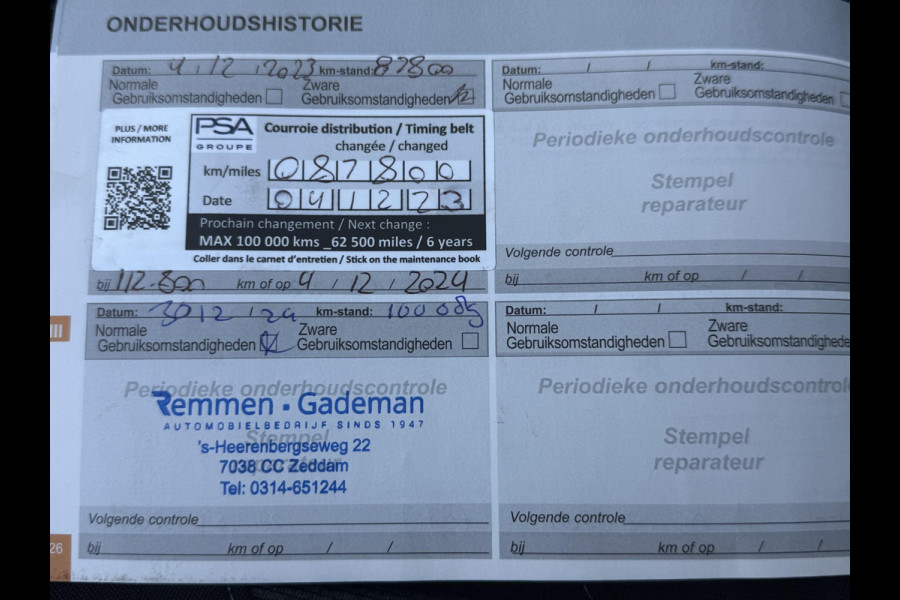 ONDERHOUDSHISTORIE
Datum: 4/12/2023 km-stand: 87800
Normale Gebruiksomstandigheden
Zware Gebruiksomstandigheden
PLUS / MORE
INFORMATION
PSA
GROUPE
Courroie distribution / Timing belt
changée / changed
km/miles 087800
Date 041223
Prochain changement / Next change :
MAX 100 000 kms _62 500 miles / 6 years
Coller dans le carnet d'entretien / Stick on the maintenance book
bij 112.800 km of op 4 / 12 / 2024
Datum: / / km-stand:
Normale Gebruiksomstandigheden
Zware Gebruiksomstandigheden
Periodieke onderhoudscontrole
Stempel
reparateur
Volgende controle
bij km of op / /
III
Datum: 3012 / 24 km-stand: 100085
Normale Gebruiksomstandigheden
Zware Gebruiksomstandigheden
Periodieke onderhoudscontrole
Stempel
Remmen · Gademan
AUTOMOBIELBEDRIJF SINDS 1947
's-Heerenbergseweg 22
7038 CC Zeddam
Tel: 0314-651244
Volgende controle
bij km of op / /
Datum: / / km-stand:
Normale Gebruiksomstandigheden
Zware Gebruiksomstandighede
Periodieke onderhoudscontrol
Stempel
reparateur
Volgende controle
bij km of op / /
26